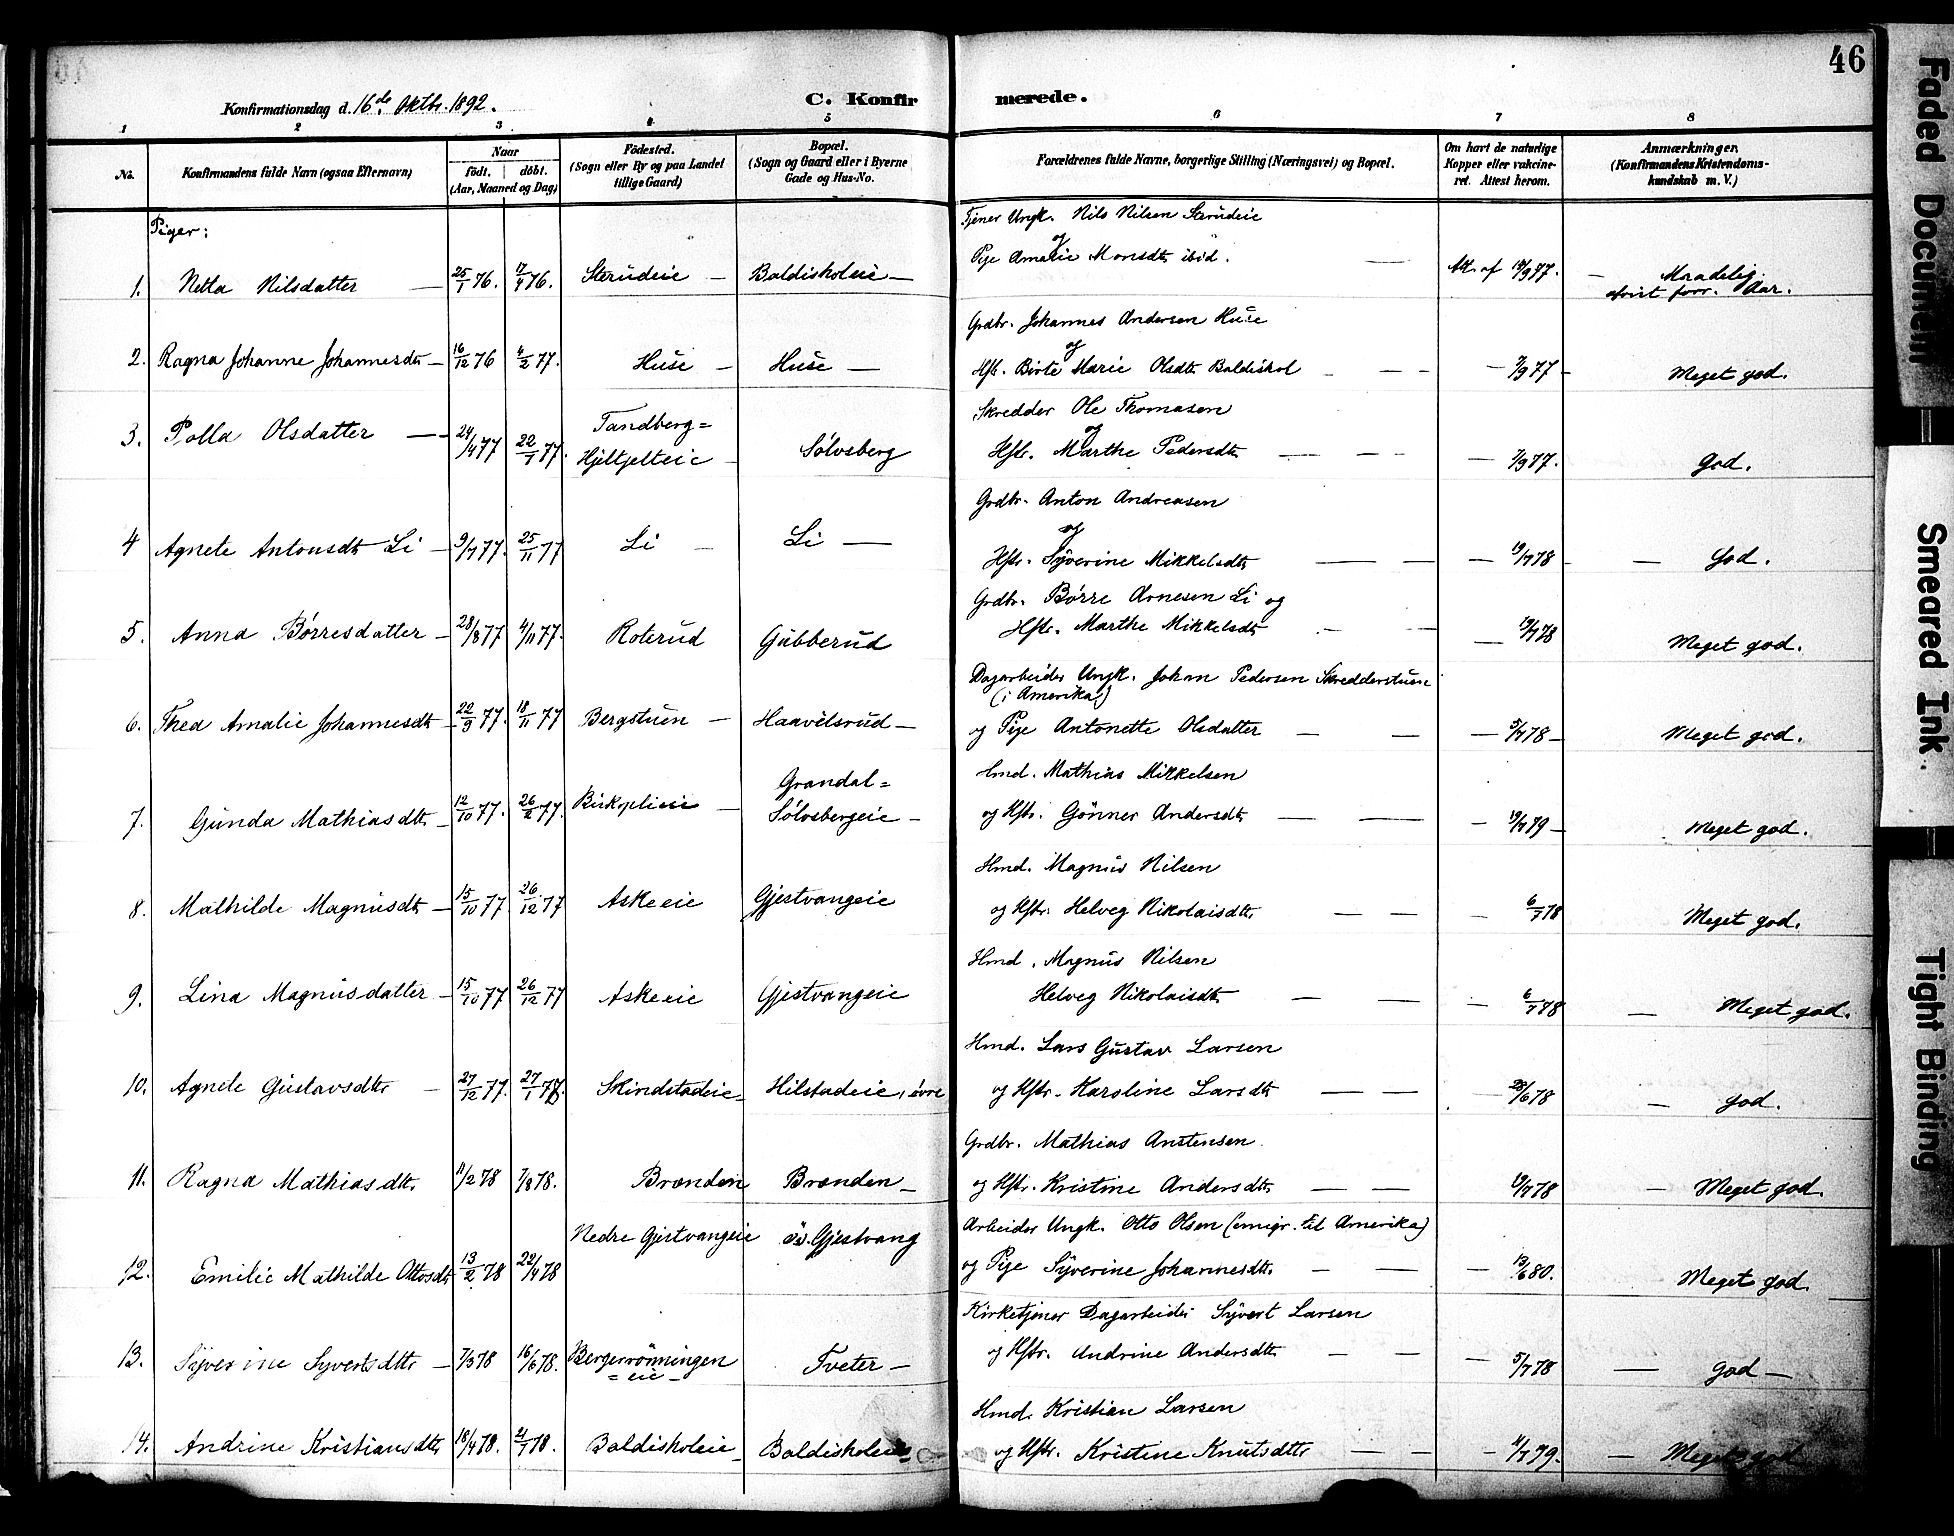 46
Konfirmationsdag d. 16de Oktbr. 1892.
C. Konfir merede.
1 2 3 4 5 6 7 8
No.
Konfirmandens fulde Navn (ogsaa Efternavn)
Naar
født. døbt.
(Aar, Maaned og Dag)
Fødested.
(Sogn eller By og paa Landet
tillige Gaard)
Bopæl.
(Sogn og Gaard eller i Byerne
Gade og Hus-No.
Forældrenes fulde Navne, borgerlige Stilling (Næringsvei) og Bopæl.
Om havt de naturlige
Kopper eller vakcine-
ret. Attest herom.
Anmærkninger.
(Konfirmandens Kristendoms-
kundskab m. V.)
Piger:
Tjener Ungk. Nils Nilsen Sterudeie
og
1. Netta Nilsdatter 25/1 76. 17/4 76. Sterudeie Baldiskoleie Pige Amalie Monsdt. ibid. Att. af 19/9 77. Maadelig.
afvist forr. Aar.
Grdbr. Johannes Andersen Huse
og
2. Ragna Johanne Johannesdtr 16/12 76 4/2 77. Huse Huse Hstr. Birte Marie Olsdtr. Baldiskol 7/9 77 Meget god.
Skredder Ole Thomasen
og
3. Polla Olsdatter 24/4 77 22/7 77. Tandberg=
Hjeltjelteie Sølvsberg Hstr. Marthe Pedersdtr. 7/9 77. God.
Grdbr. Anton Andreasen
og
4 Agnete Antonsdtr Li 9/7 77. 25/11 77 Li Li Hstr. Syverine Mikkelsdtr. 19/7 78 God.
Grdbr. Børre Arnesen Li og
5. Anna Børresdatter 28/8 77 4/11 77. Roterud Gubberud Hstr. Marthe Mikkelsdtr. 19/7 78 Meget god.
Dagarbeider Ungk. Johan Pedersen Skredderstuen
(i Amerika)
6. Thea Amalie Johannesdtr 22/9 77. 18/11 77 Bergstuen Haavelsrud og Pige Antonette Olsdatter 5/7 78 Meget god.
Hmd. Mathias Mikkelsen
7. Gunda Mathiasdtr. 12/10 77. 26/12 77. Birkeplieie Grandal=
Sølvsbergeie og Hstr. Gønner Andersdtr. 19/7 79 Meget god.
Hmd. Magnus Nilsen
8. Mathilde Magnusdtr 15/10 77. 26/12 77 Askeeie Gjestvangeie og Hstr. Helveg Nikolaisdtr. 6/7 78 Meget god.
Hmd. Magnus Nilsen
9. Lina Magnusdatter 15/10 77 26/12 77 Askeeie Gjestvangeie Helveg Nikolaisdtr. 6/7 78 Meget god.
Hmd. Lars Gustav Larsen
10. Agnete Gustavsdtr 27/12 77. 27/1 78. Skindstadeie Hilstadeie, øvre og Hstr. Karoline Larsdtr 28/6 78 God.
Grdbr. Mathias Anstensen.
11. Ragna Mathiasdtr. 11/2 78 7/3 78. Brænden Brænden og Hstr. Kristine Andersdtr. 19/7 78 Meget god.
Arbeider Ungk. Otto Olsen (emigr. til Amerika)
12. Emilie Mathilde Ottosdtr 13/2 78 22/4 78 Nedre Gjestvangeie øv. Gjestvang og Pige Syverine Johannesdtr. 13/6 80. Meget god.
Kirketjener Dagarbeider Syvert Larsen
13. Syverine Syvertsdtr 7/3 78 16/6 78. Bergerrønningen
=eie Tveter og Hstr. Andrine Andersdtr. 5/7 78 God
Hmd. Kristian Larsen
14. Andrine Kristiansdtr 18/4 78. 21/7 78. Baldiskoleie Baldiskoleie og Hstr. Kristine Knutsdtr 4/7 79. Meget god
Faded Document
Smeared Ink.
Tight Binding